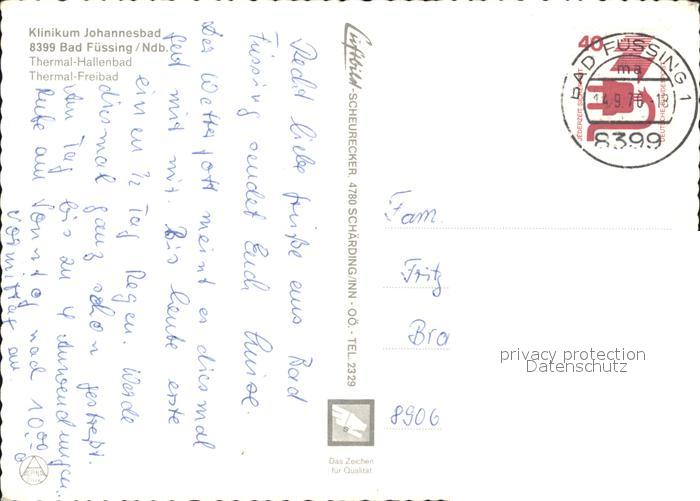 Klinikum Johannesbad
8399 Bad Füssing / Ndb.
Thermal-Hallenbad
Thermal-Freibad
Recht liebe Grüße aus Bad
Füssing sendet Euch Luise.
Der Wettergott meint es diesmal
gut mit mir. Bis heute erst
einen ½ Tag Regen. Werde
diesmal ganz schön gestreßt.
Am Tag bis zu 4 Anwendungen.
Rufe am Sonntag nach 10.00
vormittag an
Luftbild-SCHEURECKER, 4780 SCHÄRDING/INN - OÖ. - TEL. 2329
Das Zeichen
für Qualität
40
JEDERZEIT SICHERHEIT
DEUTSCHE BUNDESPOST
BAD FÜSSING 1
ma
14.9.76-12
8399
Fam.
Fritz
Bra
8906
privacy protection
Datenschutz